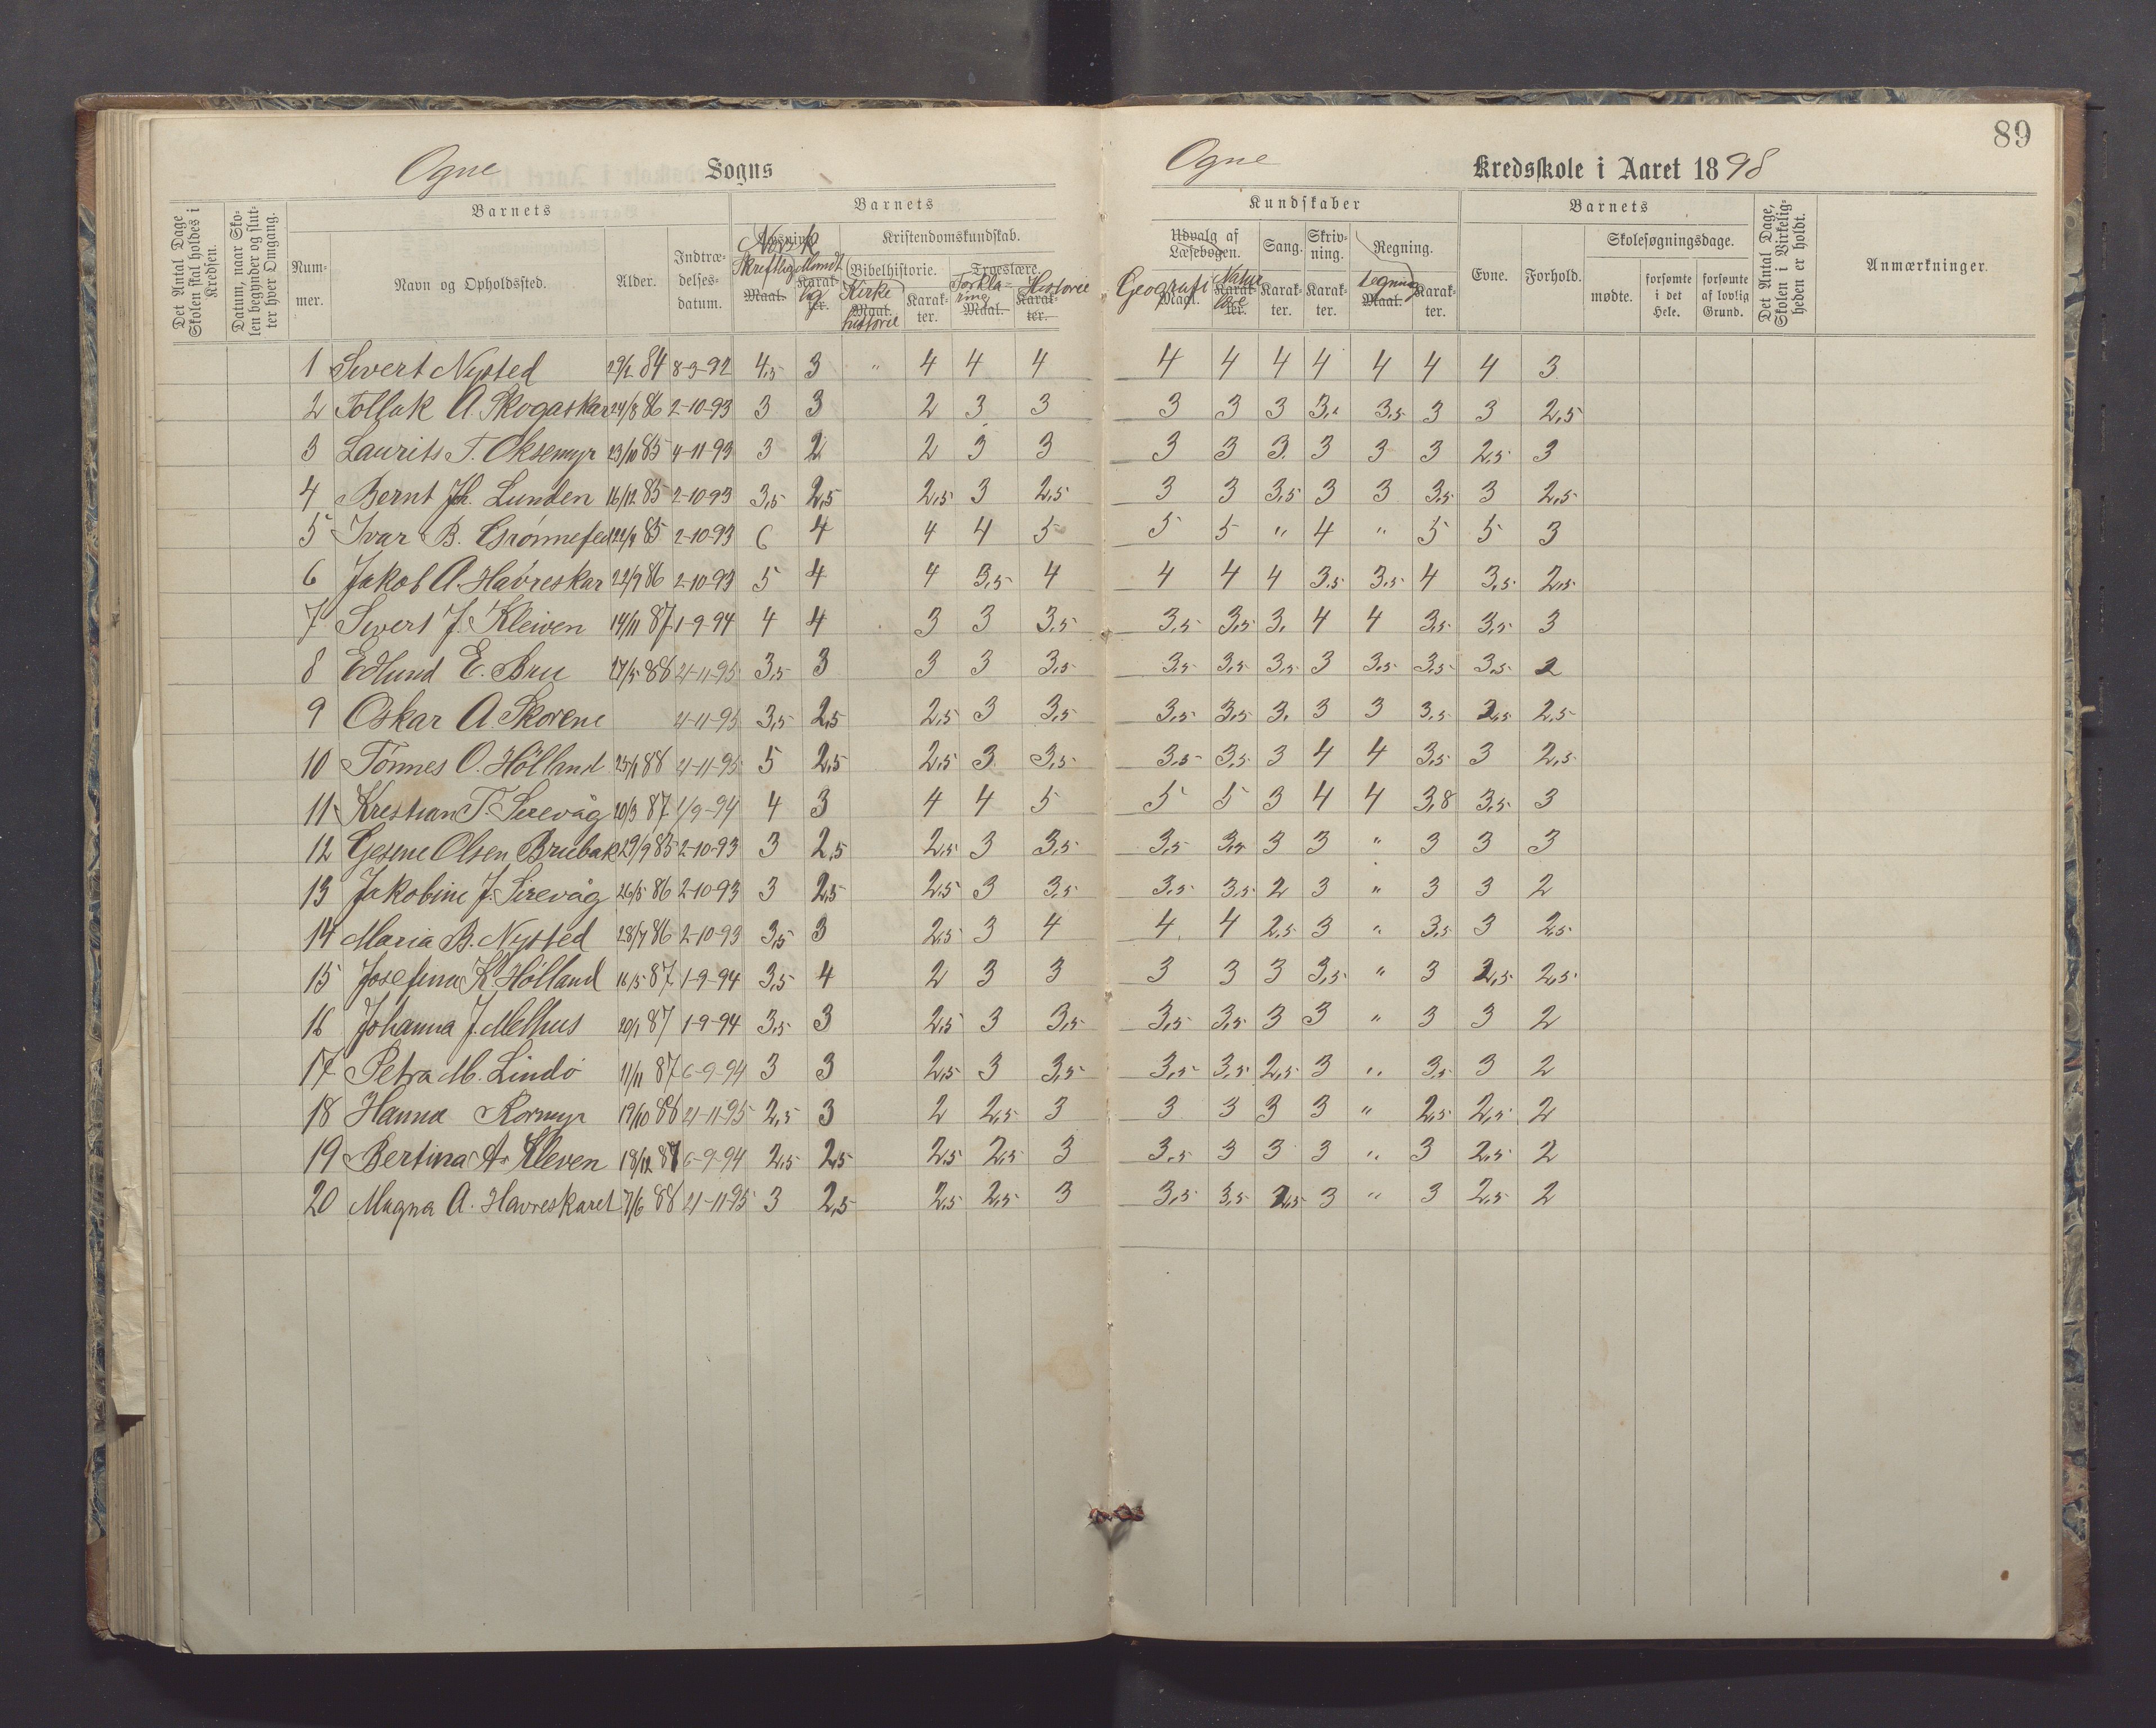 89
Ogne Sogns
Ogne Kredsskole i Aaret 1898
Det Antal Dage Skolen skal holdes i Kredsen.
Datum, naar Skolen begynder og slutter hver Omgang.
Barnets
Nummer.
Navn og Opholdssted.
Alder.
Indtrædelsesdatum.
Barnets
Læsning. Norsk
Skriftlig Maal.
Mundtlig Karakter.
Kristendomskundskab.
Bibelhistorie.
Kirkehistorie Maal.
Karakter.
Troeslære.
Forklaring Maal.
Historie Karakter.
Kundskaber
Udvalg af Læsebogen.
Geografi Maal.
Naturlære Karakter.
Sang.
Karakter.
Skrivning.
Karakter.
Regning.
Tegning Maal.
Karakter.
Barnets
Evne.
Forhold.
Skolesøgningsdage.
mødte.
forsømte i det Hele.
forsømte af lovlig Grund.
Det Antal Dage, Skolen i Virkeligheden er holdt.
Anmærkninger.
1 Sivert Nysted 84 8-3-92 4,5 3 " 4 4 4 4 4 4 4 4 4 4 3
2 Tollak A. Skogaskar 24/8 86 2-10-93 3 3 2 3 3 3 3 3 3,5 3 3 2,5
3 Laurits T. Oksemyr 23/10 85 4-11-93 3 2 2 3 3 3 3 3. 3 3 3 2,5 3
4 Bernt Jh. Lunden 16/12 85 2-10-93 3,5 2,5 2,5 3 2,5 3 3 3,5 3 3 3,5 3 2,5
5 Ivar B. 85 2-10-93 6 4 4 4 5 5 5 " 4 " 5 5 3
6 Jakob A. Havreskar 22/9 86 2-10-93 5 4 4 3,5 4 4 4 4 3,5 3,5 4 3,5 2,5
7 Sivert J. Kleiven 14/11 87 1-9-94 4 4 3 3 3,5 3,5 3,5 3. 4 4 3,5 3,5 3
8 Edlund E. Bru 27/5 86 21-11-95 3,5 3 3 3 3,5 3,5 3,5 3,5 3 3,5 3,5 3,5 2
9 Oskar A. Skorene 21-11-95 3,5 2,5 2,5 3 3,5 3,5 3,5 3. 3 3 3,5 2,5 2,5
10 Tönnes O. Hölland 25/1 88 21-11-95 5 2,5 2,5 3 3,5 3,5 3,5 3 4 4 3,5 3 2,5
11 Krestian T. Sirevåg 20/3 87 1/9-94 4 3 4 4 5 5 5 3 4 4 3,8 3,5 3
12 Gesine Olsen Bruebak 29/9 85 2-10-93 3 2,5 2,5 3 3,5 3,5 3,5 3 3 " 3 3 3
13 Jakobine J. Sirevåg 26/5 86 2-10-93 3 2,5 2,5 3 3,5 3,5 3,5 2 3 " 3 3 2
14 Maria B. Nysted 28/7 86 2-10-93 3,5 3 2,5 3 4 4 4 2,5 3 " 3,5 3 2,5
15 Josefina K. Hölland 16/5 87 1-9-94 3,5 4 2 3 3 3 3 3 3,5 " 3 2,5 2,5
16 Johanna J. Melhus 20/1 87 1-9-94 3,5 3 2,5 3 3,5 3,5 3,5 3 3 " 3 3 2
17 Petra M. Lindö 11/11 87 6-9-94 3 3 2,5 3 3,5 3,5 3,5 2,5 3 " 3,5 3 2
18 Hanna Kormyr 19/10 88 21-11-95 2,5 3 2 2,5 3 3 3 3 3 " 2,5 2,5 2
19 Bertina A. Kleven 18/12 87 6-9-94 2,5 2,5 2,5 2,5 3 3,5 3 3 3 " 3 2,5 2
20 Magna A. Havreskaret 7/6 88 21-11-95 3 2,5 2,5 2,5 3 3,5 3,5 2,5 3 " 3 2,5 2